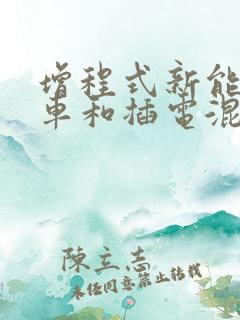 增程式新能
車和插電混
陳立志
未經同意禁止轉載